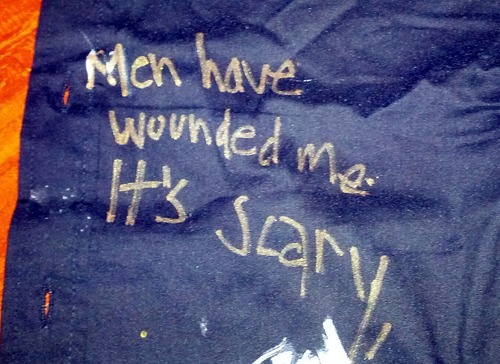 Men have
wounded me.
It's scary